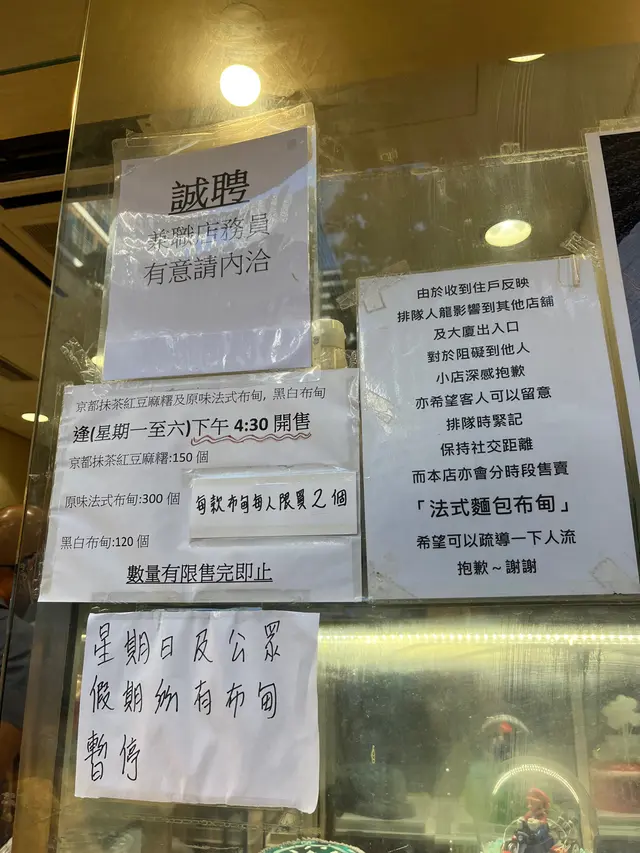 誠聘
兼職店務員
有意請內洽
由於收到住戶反映
排隊人龍影響到其他店舖
及大廈出入口
對於阻礙到他人
小店深感抱歉
亦希望客人可以留意
排隊時緊記
保持社交距離
而本店亦會分時段售賣
「法式麵包布甸」
希望可以疏導一下人流
抱歉~謝謝
京都抹茶紅豆麻糬及原味法式布甸, 黑白布甸
逢(星期一至六)下午 4:30 開售
京都抹茶紅豆麻糬:150 個
原味法式布甸:300 個
每款布甸每人限買 2 個
黑白布甸:120 個
數量有限售完即止
星期日及公眾
假期所有布甸
暫停